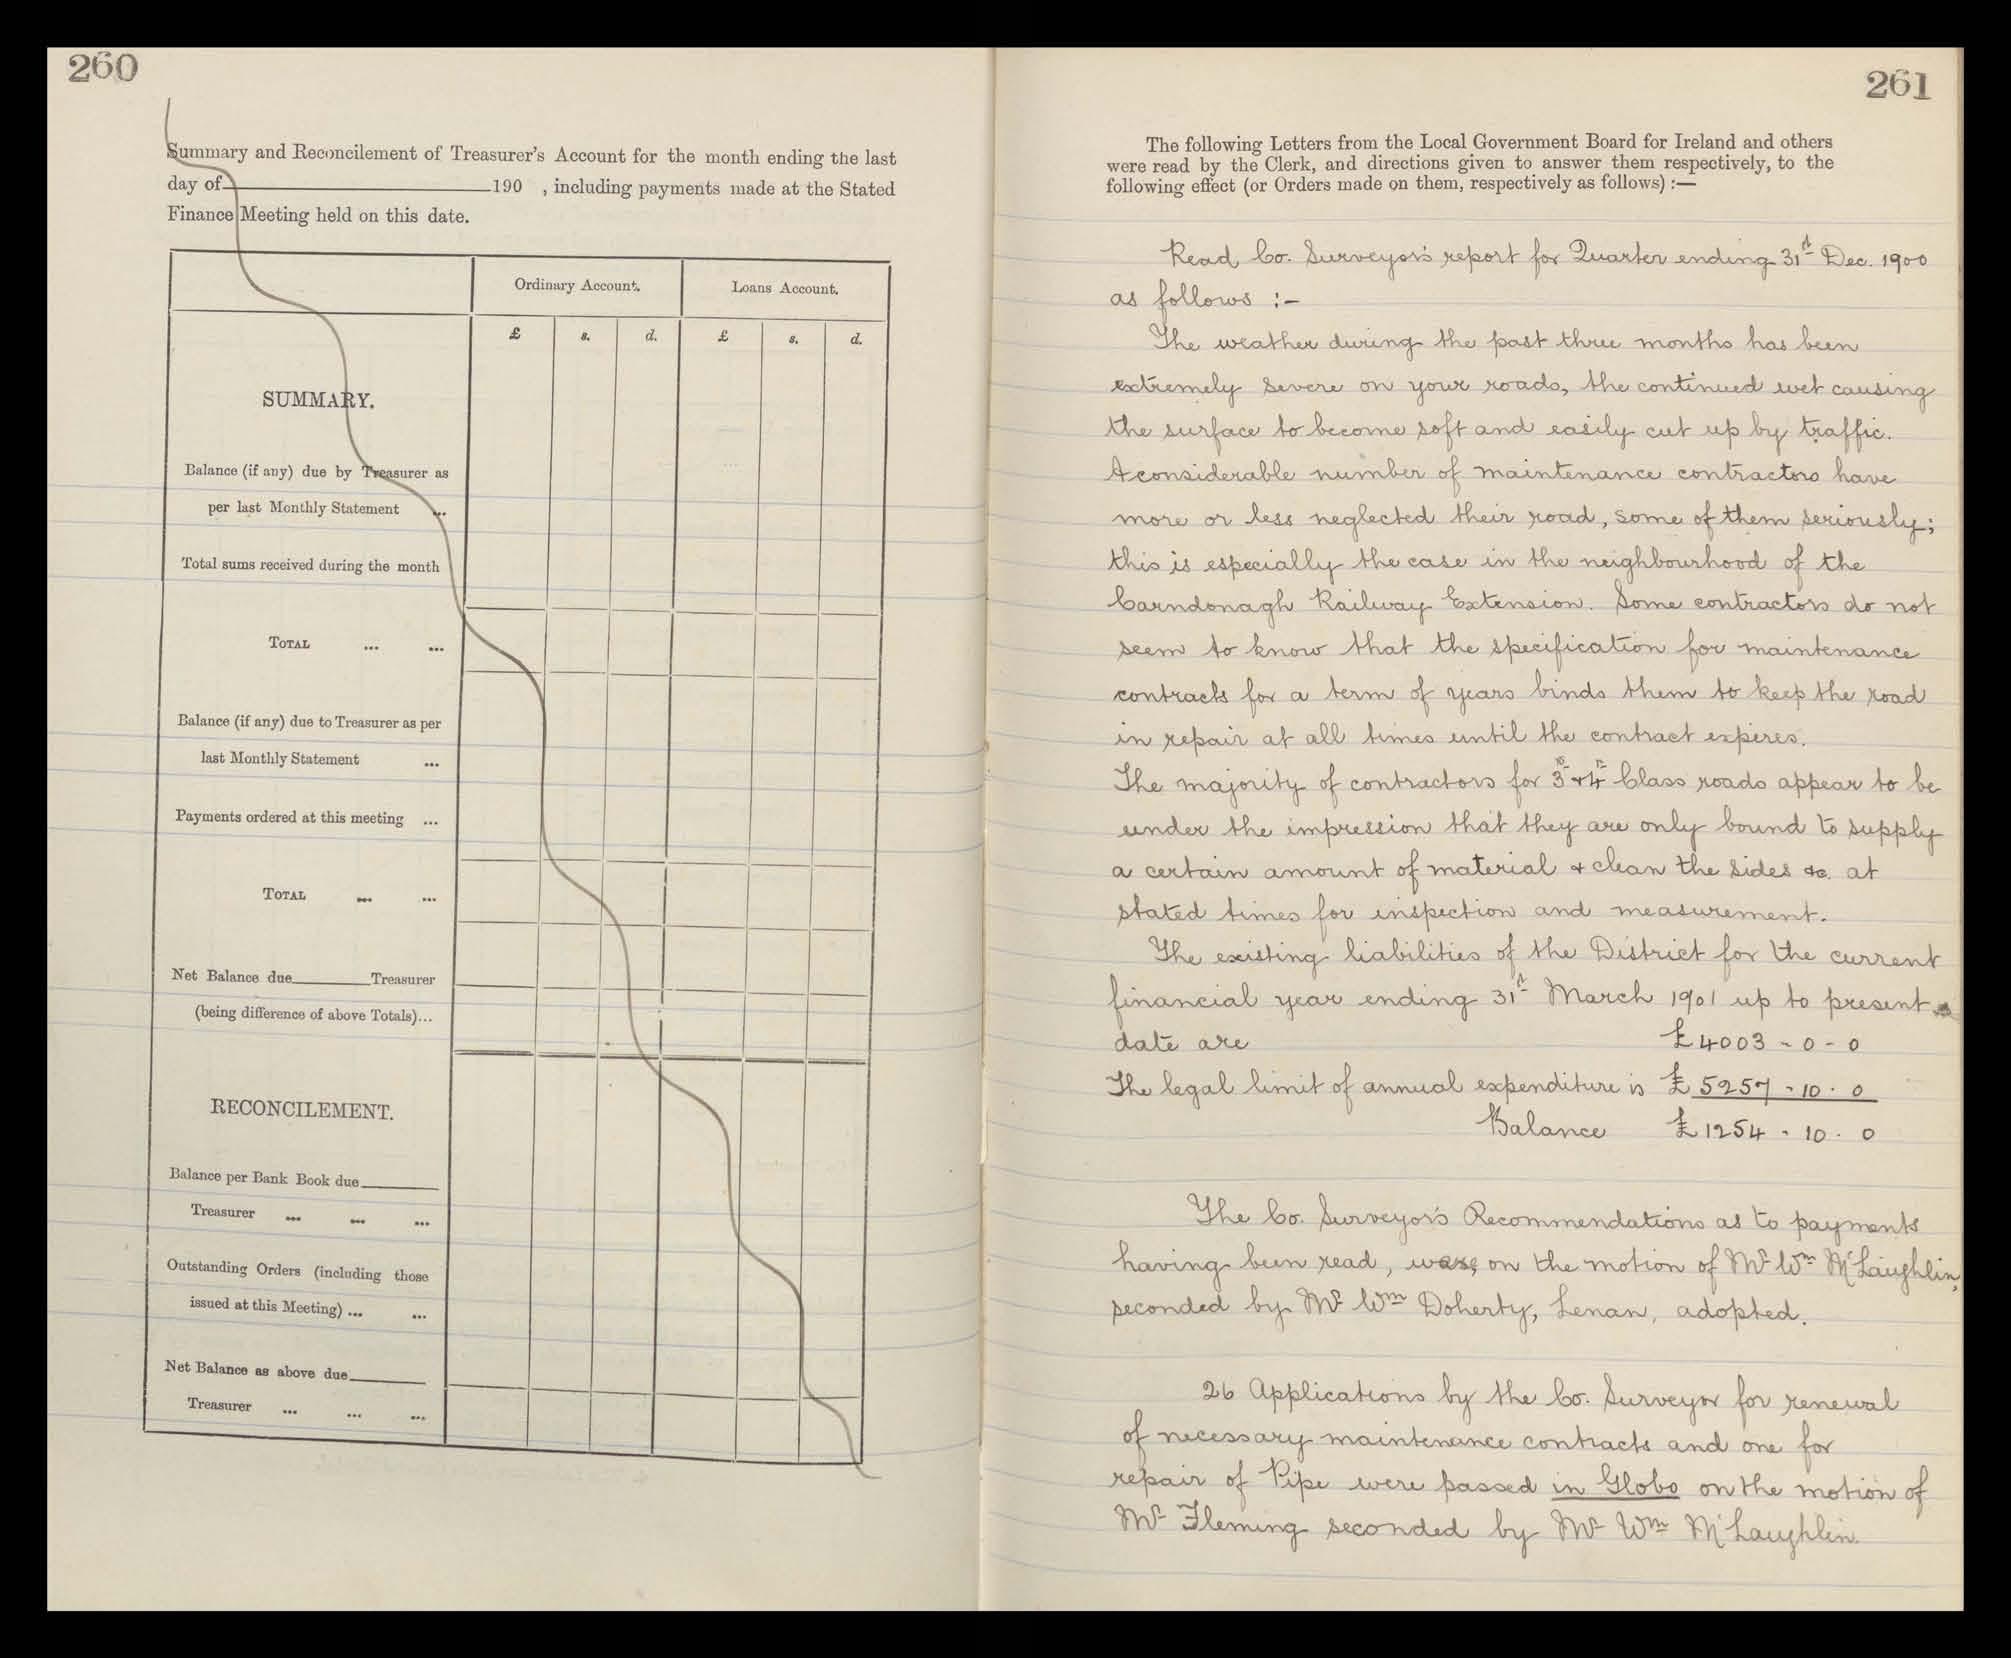 260
Summary and Reconcilement of Treasurer's Account for the month ending the last
day of 190 , including payments made at the Stated
Finance Meeting held on this date.
Ordinary Account. Loans Account.
£ s. d. £ s. d.
SUMMARY.
Balance (if any) due by Treasurer as
per last Monthly Statement ...
Total sums received during the month
TOTAL ... ...
Balance (if any) due to Treasurer as per
last Monthly Statement ...
Payments ordered at this meeting ...
TOTAL ... ...
Net Balance due Treasurer
(being difference of above Totals)...
RECONCILEMENT.
Balance per Bank Book due
Treasurer ... ... ...
Outstanding Orders (including those
issued at this Meeting) ... ...
Net Balance as above due
Treasurer ... ... ...
261
The following Letters from the Local Government Board for Ireland and others
were read by the Clerk, and directions given to answer them respectively, to the
following effect (or Orders made on them, respectively as follows) :—
Read Co. Surveyor's report for Quarter ending 31st Dec. 1900
as follows :-
The weather during the past three months has been
extremely severe on your roads, the continued wet causing
the surface to become soft and easily cut up by traffic.
A considerable number of maintenance contractors have
more or less neglected their road, some of them seriously;
this is especially the case in the neighbourhood of the
Carndonagh Railway Extension. Some contractors do not
seem to know that the specification for maintenance
contracts for a term of years binds them to keep the road
in repair at all times until the contract experes.
The majority of contractors for 3rd & 4th Class roads appear to be
under the impression that they are only bound to supply
a certain amount of material & clean the sides &c. at
stated times for inspection and measurement.
The existing liabilities of the District for the current
financial year ending 31st March 1901 up to present
date are £4003 - 0 - 0
The legal limit of annual expenditure is £5257 - 10 . 0
Balance £1254 - 10 . 0
The Co. Surveyor's Recommendations as to payments
having been read, were, on the motion of Mr Wm McLaughlin,
seconded by Mr Wm Doherty, Lenan, adopted.
26 Applications by the Co. Surveyor for renewal
of necessary maintenance contracts and one for
repair of Pipe were passed in Globo on the motion of
Mr Fleming seconded by Mr Wm McLaughlin.